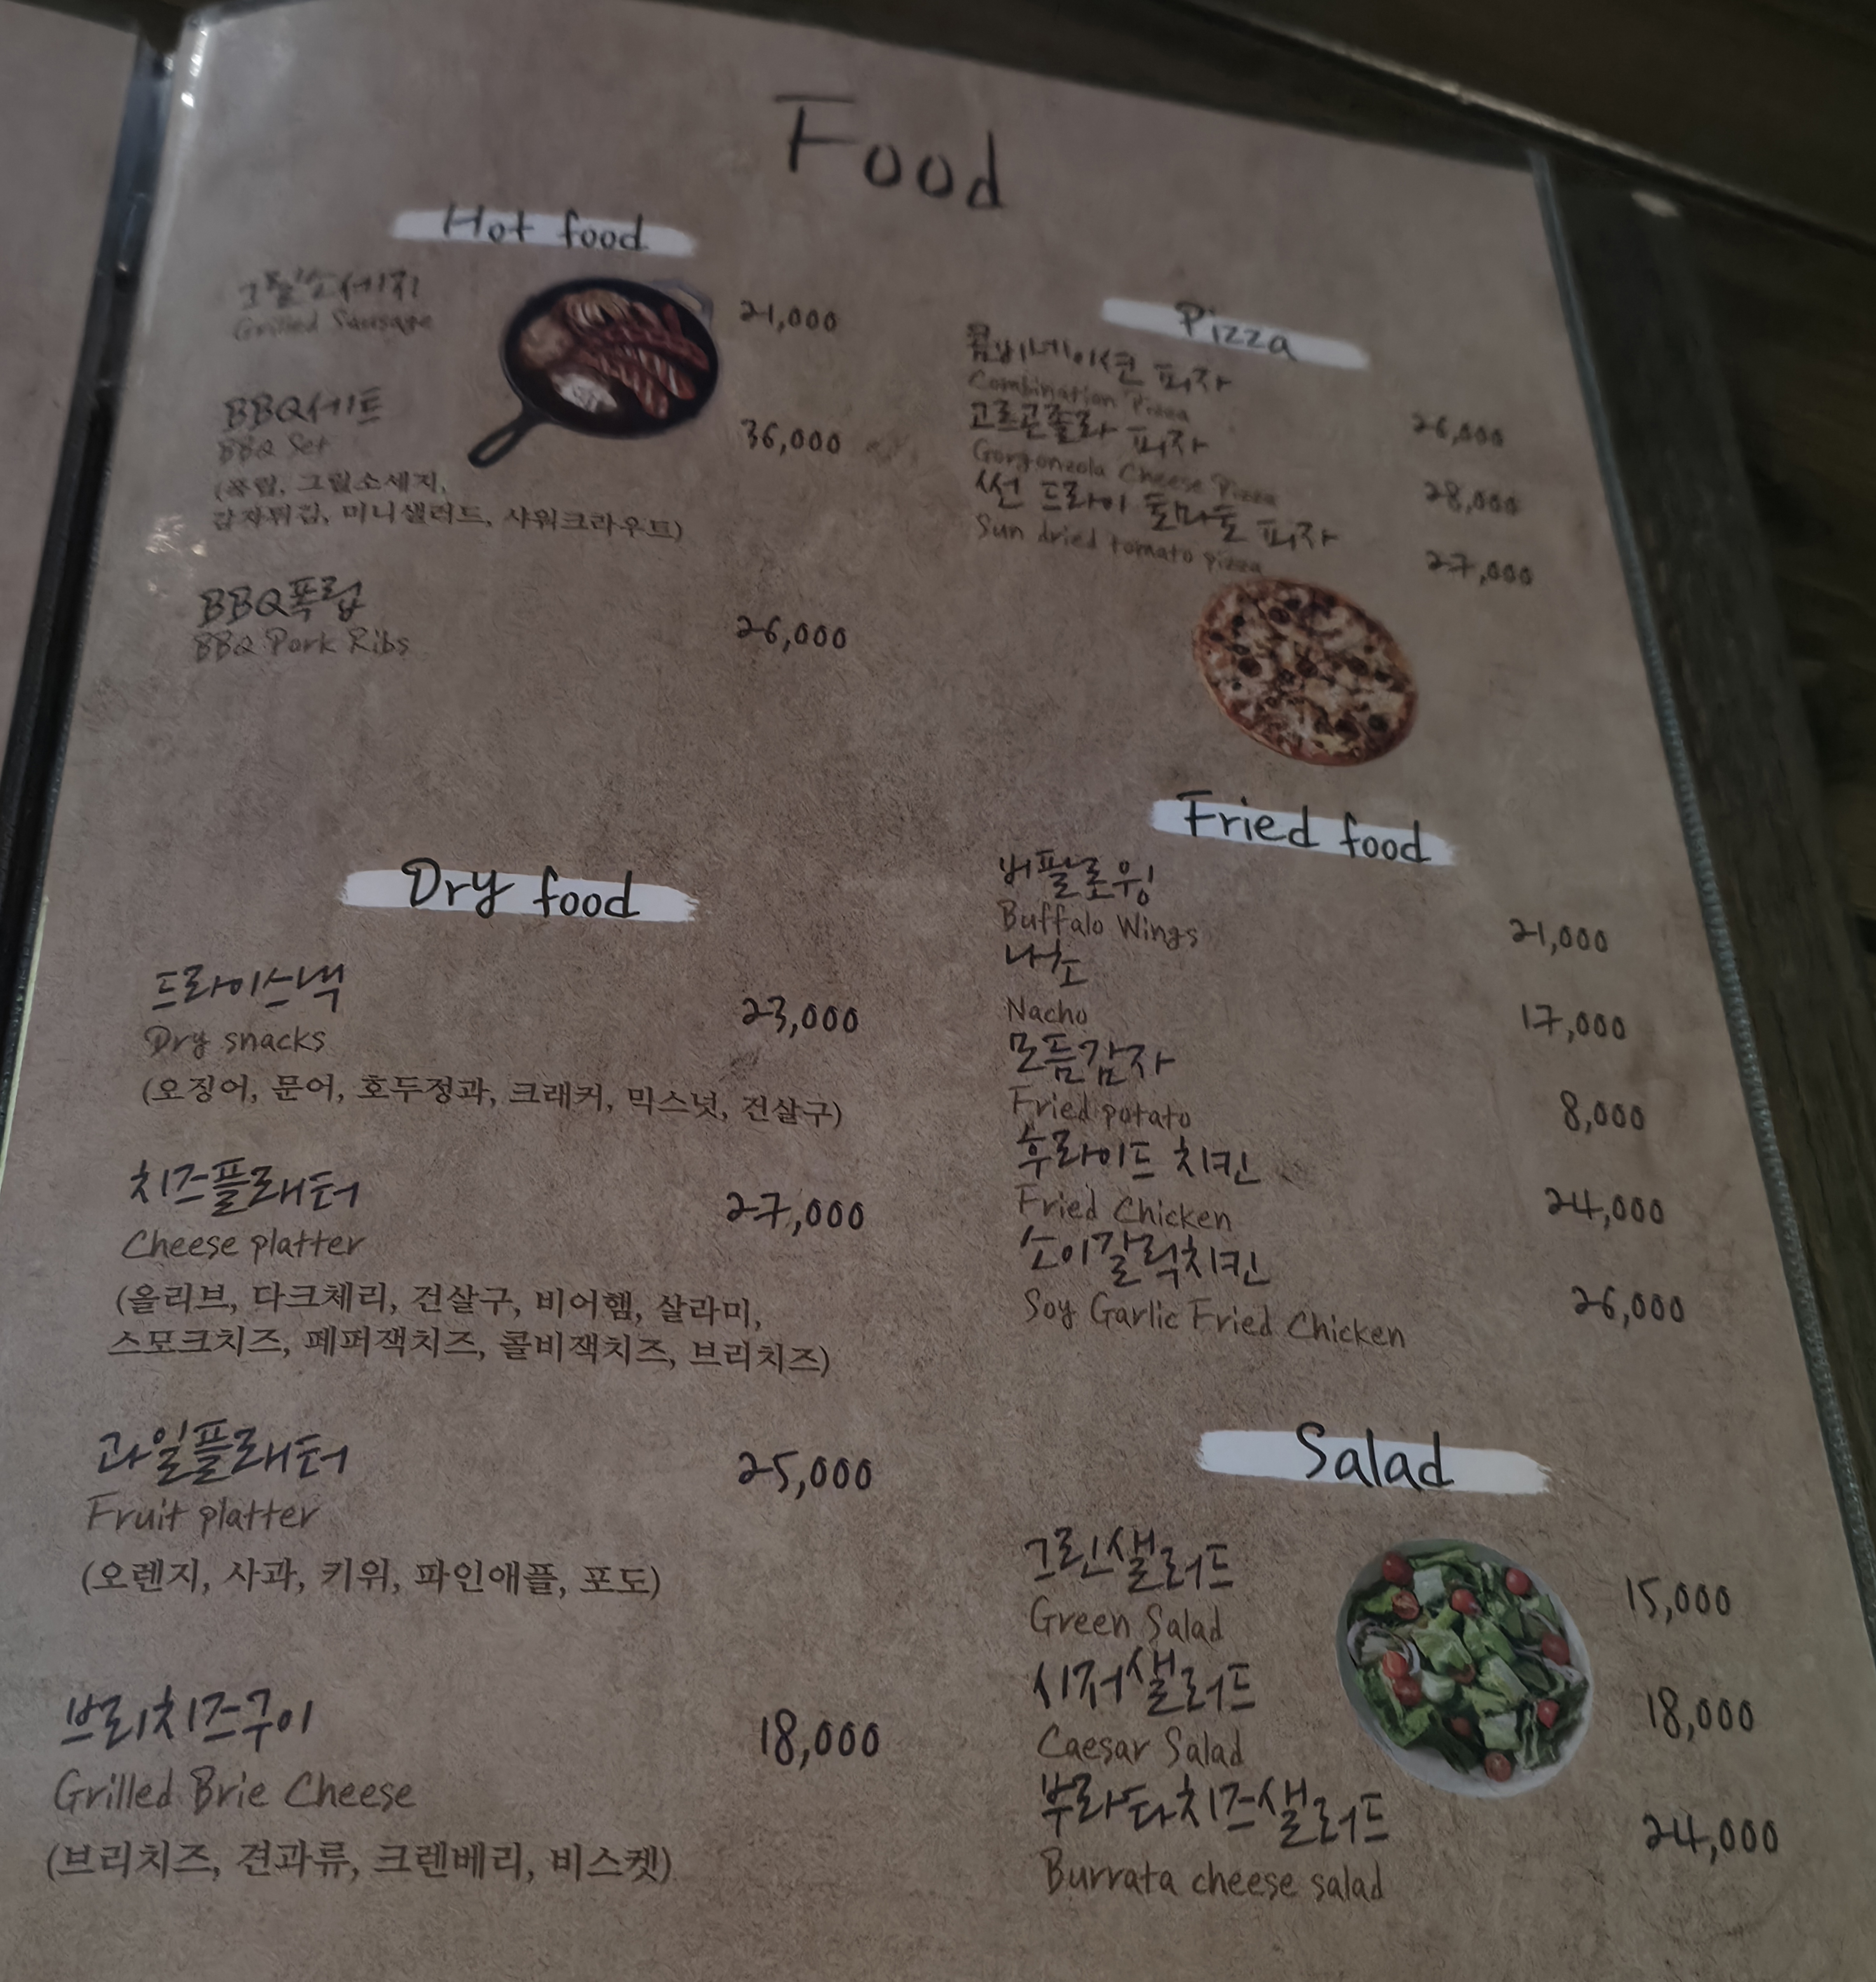 Food
Hot food
그릴소세지
Grilled Sausage
21,000
BBQ세트
BBQ Set
36,000
(폭립, 그릴소세지,
감자튀김, 미니샐러드, 사워크라우트)
BBQ폭립
BBQ Pork Ribs
26,000
Pizza
콤비네이션 피자
Combination Pizza
26,000
고르곤졸라 피자
Gorgonzola Cheese Pizza
28,000
썬 드라이 토마토 피자
Sun dried tomato pizza
27,000
Dry food
드라이스낵
Dry snacks
23,000
(오징어, 문어, 호두정과, 크래커, 믹스넛, 건살구)
치즈플래터
Cheese platter
27,000
(올리브, 다크체리, 건살구, 비어햄, 살라미,
스모크치즈, 페퍼잭치즈, 콜비잭치즈, 브리치즈)
과일플래터
Fruit platter
25,000
(오렌지, 사과, 키위, 파인애플, 포도)
브리치즈구이
Grilled Brie Cheese
18,000
(브리치즈, 견과류, 크렌베리, 비스켓)
Fried food
버팔로윙
Buffalo Wings
21,000
나초
Nacho
17,000
모듬감자
Fried potato
8,000
후라이드 치킨
Fried Chicken
24,000
소이갈릭치킨
Soy Garlic Fried Chicken
26,000
Salad
그린샐러드
Green Salad
15,000
시저샐러드
Caesar Salad
18,000
부라타치즈샐러드
Burrata cheese salad
24,000